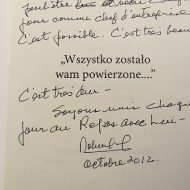 peut être
jour comme chef d'entreprise
C'est possible. C'est très beau
„Wszystko zostało
wam powierzone....”
C'est très dur –
Soyons unis chaque
jour au Repas avec Lui –
octobre 2012.